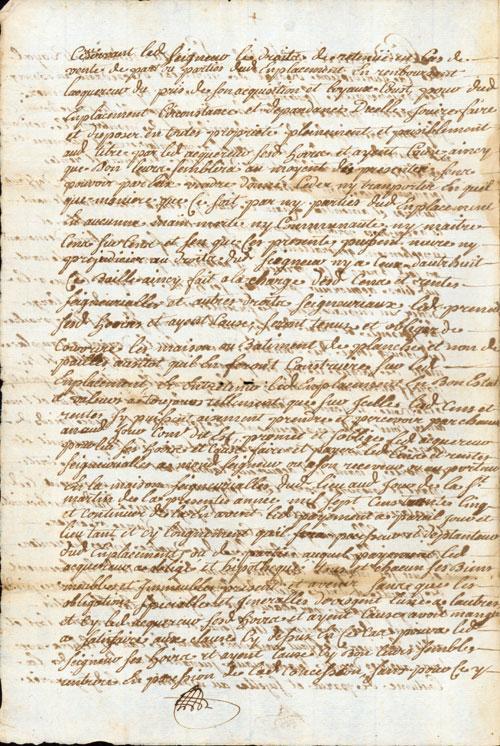 led. Seigneur le droits de retenir en Cas de
vente de part ou parties dud. Emplacement en remboursant
lacquereur du prix de son acquisition et loyaux Cousts, pour dud.
Emplacement Circonstances et dependances Dicelle, Jouire faire
et disposer en toutes proprieté plainement et paisiblement
aud. titre par led. acquereur Sesd. Hoirs et ayant Cause, ainsy
que Bon leurs Semblera au moyent des presentes, Sans
pouvoir par eux vendre donner Ceder ny transporter en quel
que maniere que Ce Soit par ny parties dud. Emplacement
a aucunes main morte ny Communauté ny mettre
Cens Sur Cens et Sans que Ces presentes puissent nuire ny
prejudicier au droits dud. Seigneur ny a Ceux d'autruit
Ce Baille ainsy fait a la Charge desd. Cens et rentes
Seigneurialles et autres droits Seigneuriaux led. preneur
Sesd. Hoirs et ayent Cause, Seront tenus et obliger de
Couvrire les maison ou Batiment de planches et non de
pailles aussitot qu'ils en feront Construires Sur led.
Emplacement, et entretenir led. Emplacement en Bon Estat
et valeur et toujours tellement que Sur Icelles lesd. Cens et
rentes Sy puissent aisement prendre et percevoir par chacun
an aud. Jour Comt dit est, promet et Soblige led. acquereur
Ses Hoirs et Cause faire et payer lesd. Cens et rentes
Seigneurialles a mond. Seigneur ou a Son receveur ou au porteur
en la maison Seigneurialles dud. lieu au Jour de la St
martin de la presente année mil Sept Cens Cinq
et Continuer dela en avant led. payement a pareil Jour et
lieu tant et Sy longuement qu'il Sera possesseur et detempteur
dud. Emplacement ou de parties auquel payement led.
acquereur a obligé et hypotheque tous et chacun Ses Biens
meubles et Immeubles present et avenir Sans que les
obligations Speciales et generalles derogent l'une a l'autres
et led. acquereur Sesd. Hoirs et ayant Cause avoir manqué
a Satisfaire aux Clauses Cy dessus en Ce Cas pourra led.
Seigneur Ses Hoirs et ayant Cause Sy bon leurs Semble
rentrer En possession de lad. Concession, Sans pour Ce y